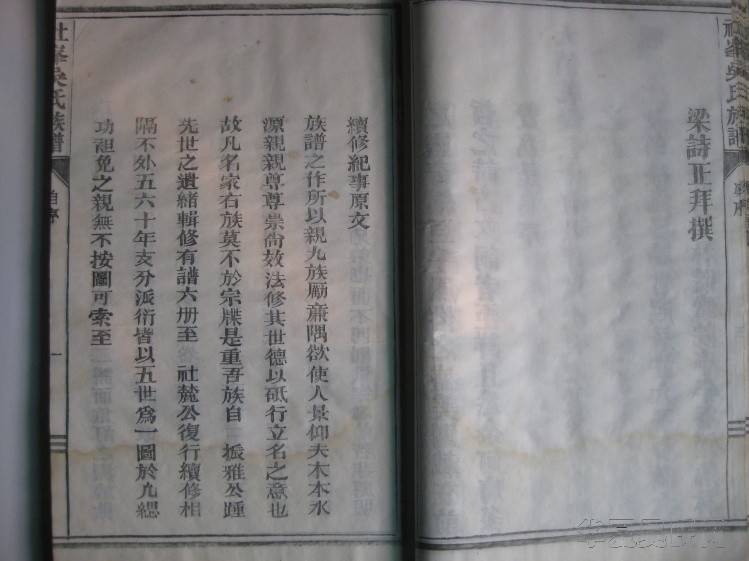 梁詩正拜撰
續修紀事原文
族譜之作所以親九族勵廉隅欲使人景仰夫木本水
源親親尊尊崇尙效法修其世德以砥行立名之意也
故凡名家右族莫不於宗牒是重吾族自 振雅公踵
先世之遺緒輯修有譜六册至 社麓公復行續修相
隔不外五六十年支分派衍皆以五世爲一圖於九緦
功袒免之親無不按圖可索至
社峯吳氏族譜
自序
一